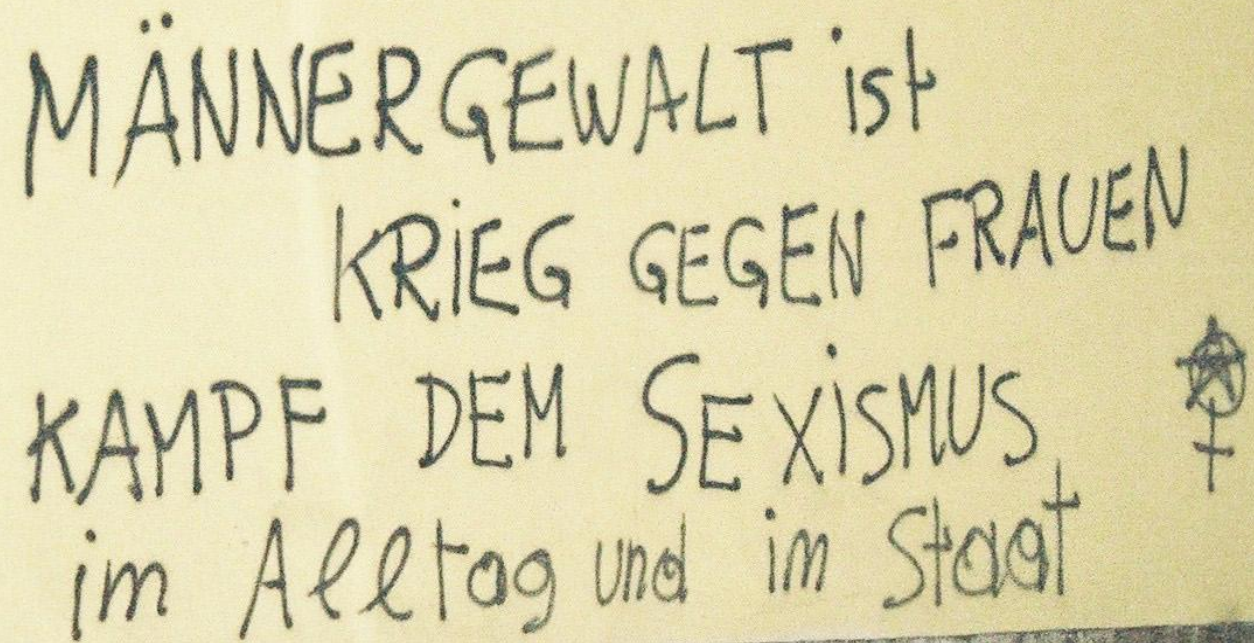 MÄNNERGEWALT ist
KRiEG GEGEN FRAUEN
KAMPF DEM SEXiSMUS
im Alltag und im Staat